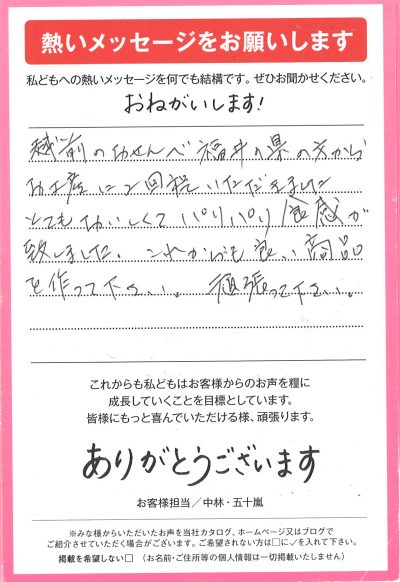 熱いメッセージをお願いします
私どもへの熱いメッセージを何でも結構です。ぜひお聞かせください。
おねがいします!
越前のおせんべ福井の県の方から
お土産に2回程いただきました
とてもおいしくてパリパリ食感が
致しました。これからも良い商品
を作って下さい。頑張って下さい。
これからも私どもはお客様からのお声を糧に
成長していくことを目標としています。
皆様にもっと喜んでいただける様、頑張ります。
ありがとうございます
お客様担当／中林・五十嵐
※みな様からいただいたお声を当社カタログ、ホームページ又はブログで
ご紹介させていただく場合がございます。ご希望されない方は□に✓を入れて下さい。
掲載を希望しない□ （お名前・ご住所等の個人情報は一切掲載いたしません）